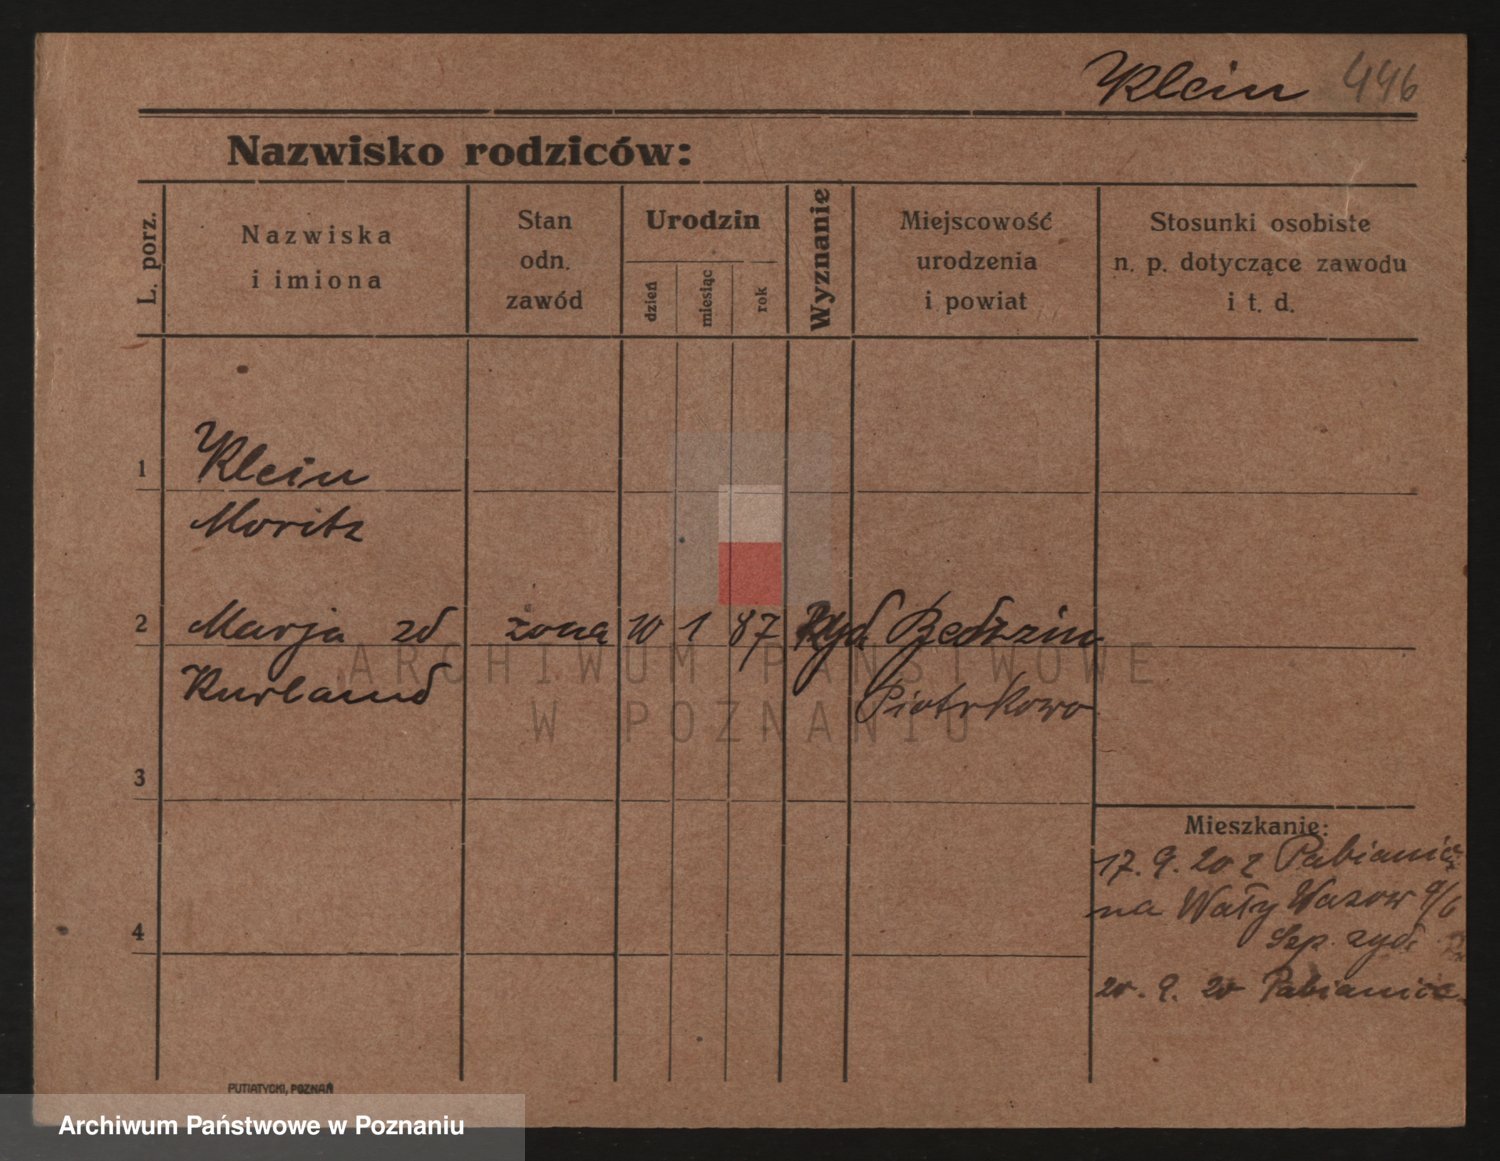 Klein 496
Nazwisko rodziców:
L. porz.
Nazwiska
i imiona
Stan
odn.
zawód
Urodzin
dzień
miesiąc
rok
Wyznanie
Miejscowość
urodzenia
i powiat
Stosunki osobiste
n. p. dotyczące zawodu
i t. d.
1 Klein
Moritz
2 Marja zd żona 10 1 87 żyd Będzin
Kurland Piotrkowo
3
4
Mieszkanie:
17. 9. 20 z Pabianic
na Wały Wazow 9/6
Szp. żyd.
20. 9. 20 Pabianice
PUTIATYCKI, POZNAŃ
ARCHIWUM PAŃSTWOWE
W POZNANIU
Archiwum Państwowe w Poznaniu